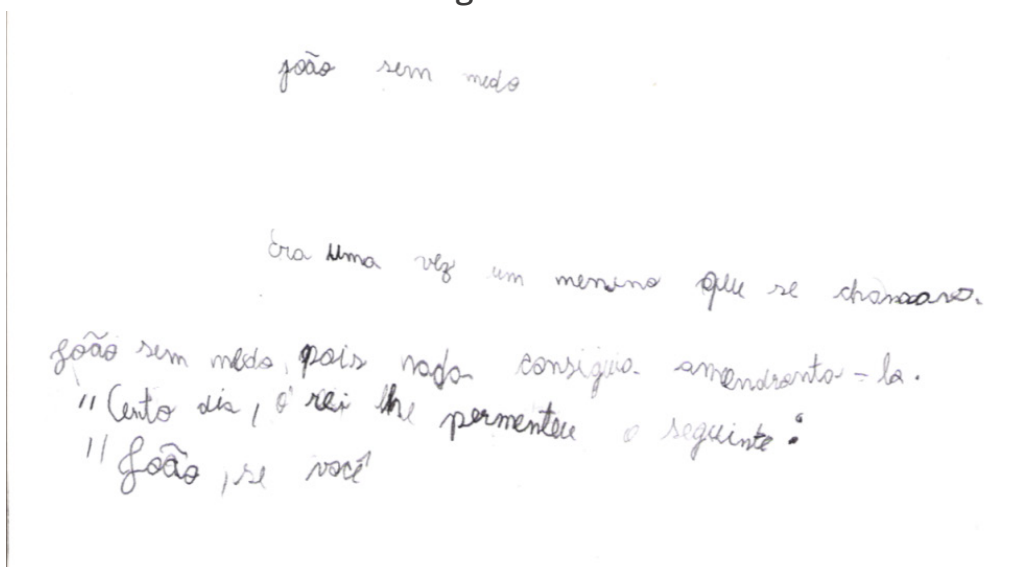 joão sem medo
Era uma vez um menino que se chamava.
João sem medo, pois nada consiguia amendranta-la.
"Cento dia, o rei lhe permenteu o seguinte:
"João, se você